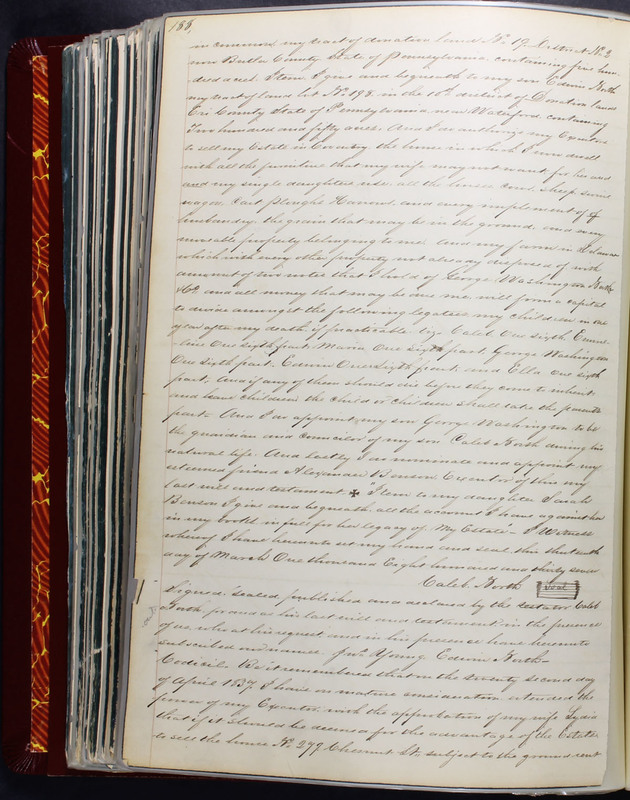 188,
in common my tract of donation land No. 19 District No. 2
near Butler County State of Pennsylvania, containing five hun-
dred acres. Item, I give and bequeath to my son Edwin North
my tract of land lot No. 198. in the 10th district of Donation lands
Eri County State of Pennsylvania near Waterford containing
Two hundred and fifty acres. And I do authorize my Executor
to sell my Estate in Coventry, the house in which I now dwell
with all the furniture that my wife may not want for her and
and my single daughters use, all the horses cows, sheep swine
wagon, Cart Ploughs Harrows, and every implement of
husbandry, the grain that may be in the ground, and every
moveable property belonging to me. And my farm in Delaware
which with every other property not already disposed of with
amount of six notes that I hold of George Washington North
&Co. and all money that may be due me, will form a capital
to divide amongst the following legatees my children in one
year after my death if practicable. viz. Caleb One sixth Emme-
line One sixth part, Maria One sixth part, George Washington
One sixth part, Edwin One sixth part, and Ella One sixth
part. And if any of them should die before they come to inherit
and have children the child or children shall take the parents
part. And I do appoint my son George Washington to be
the guardian and councilor of my son Caleb North during his
natural life. And lastly I do nominate and appoint my
esteemed friend Alexander Benson Executor of this my
last will and testament ✠ "Item to my daughter Sarah
Benson I give and bequeath all the account I have against her
in my books in full for her legacy of My Estate" - I Witness
whereof I have hereunto set my hand and seal this thirteenth
day of March One thousand Eight hundred and thirty seven
Caleb North Seal
Signed Sealed published and declared by the testator Caleb
North for and as his last will and testament in the presence
of us who at his request and in his presence have hereunto
subscribed our names. Jno. Young. Edwin North -
Codicil. Be it remembered that on the twenty second day
of April 1837. I have on mature consideration extended the
power of my Executor with the approbation of my wife Lydia
that if it should be deemed for the advantage of the Estate
to sell the house No. 279 Chesnut St. subject to the ground rent